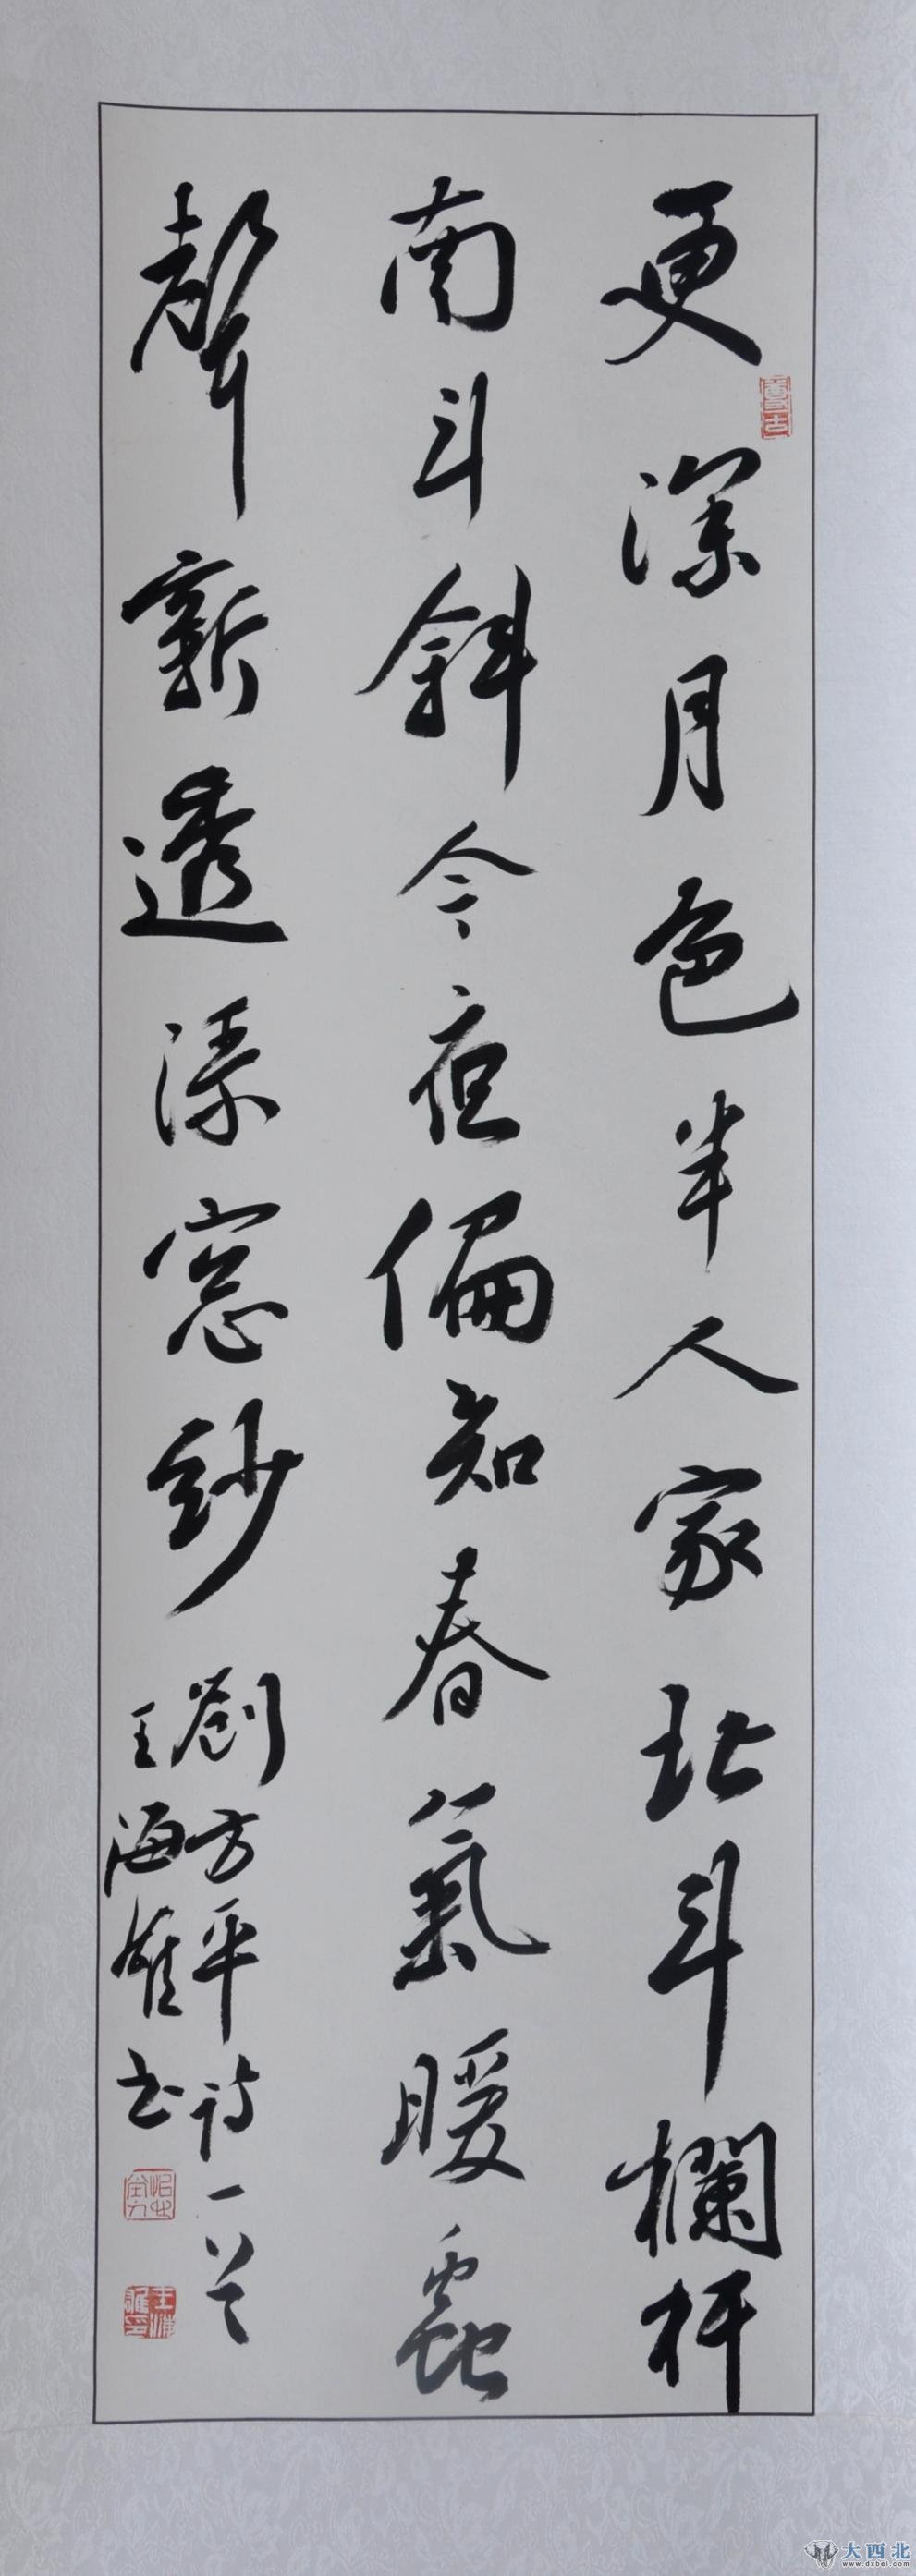 更深月色半人家北斗欄杆
南斗斜今夜偏知春氣暖蟲
聲新透漆窓紗
劉方平詩一首
王海雄书
大西北
www.dxbei.com